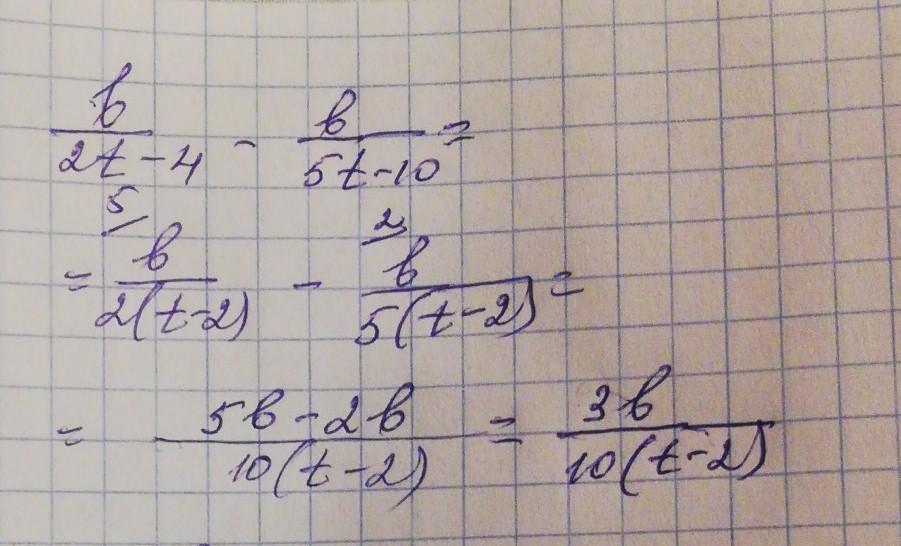 b/(2t-4) - b/(5t-10) =
5/ 2/
= b/(2(t-2)) - b/(5(t-2)) =
= (5b-2b)/(10(t-2)) = 3b/(10(t-2))